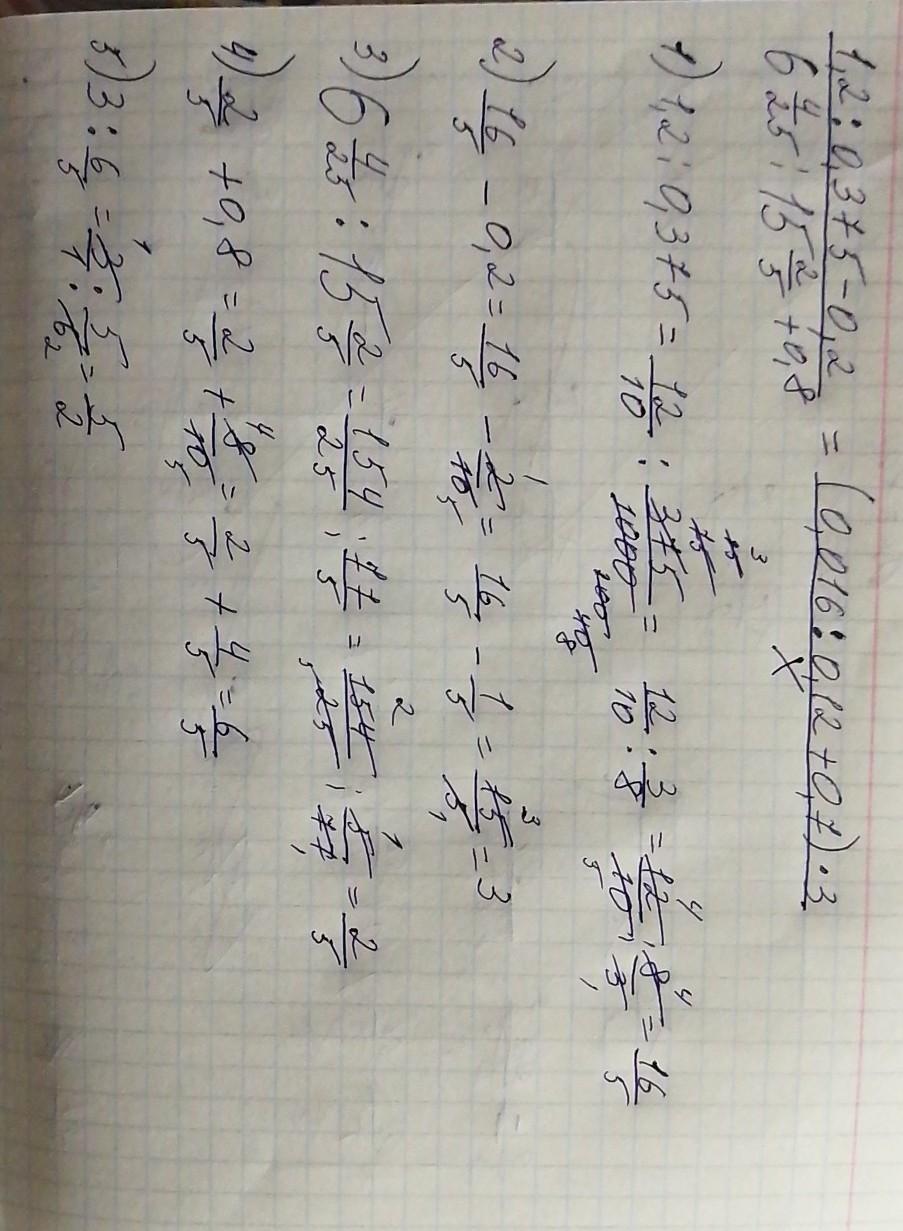 1,2 : 0,375 - 0,2 / 6 4/25 : 15 2/5 + 0,8 = (0,016 : 0,12 + 0,7) · 3 / X
1) 1,2 : 0,375 = 12/10 : 375/1000 = 12/10 : 3/8 = 12/10 · 8/3 = 16/5
2) 16/5 - 0,2 = 16/5 - 2/10 = 16/5 - 1/5 = 15/5 = 3
3) 6 4/25 : 15 2/5 = 154/25 : 77/5 = 154/25 · 5/77 = 2/5
4) 2/5 + 0,8 = 2/5 + 8/10 = 2/5 + 4/5 = 6/5
5) 3 : 6/5 = 3/1 · 5/6 = 5/2